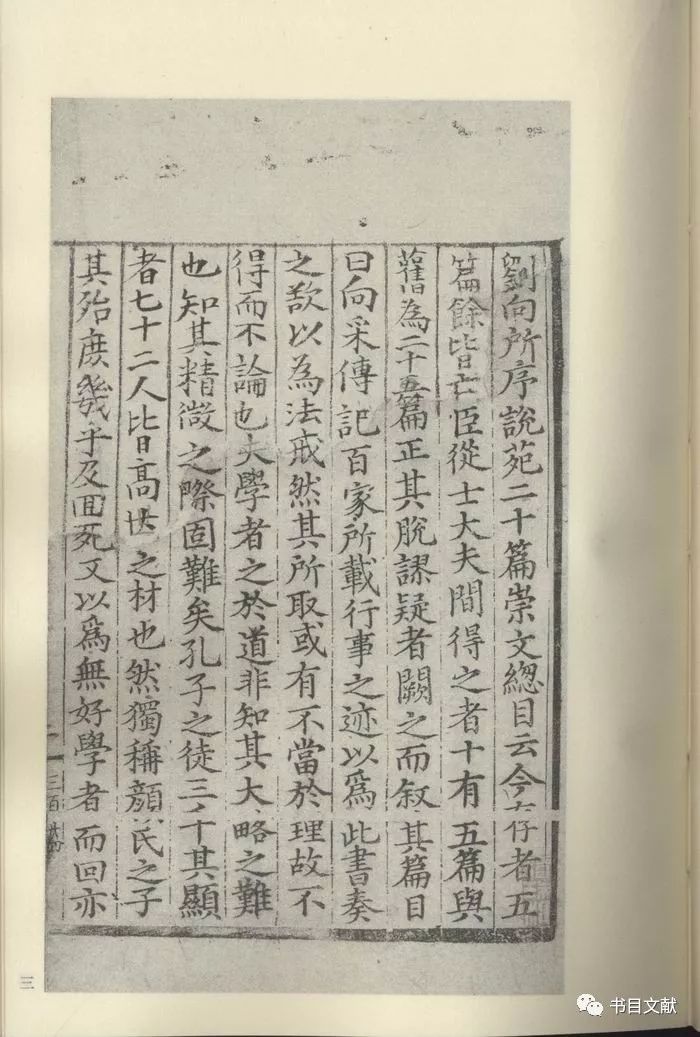 劉向所序說苑二十篇崇文總目云今存者五
篇餘皆亡臣從士大夫間得之者十有五篇與
舊為二十五篇正其脫謬疑者闕之而叙其篇目
曰向采傳記百家所載行事之迹以爲此書奏
之欲以為法戒然其所取或有不當於理故不
得而不論也夫學者之於道非知其大略之難
也知其精微之際固難矣孔子之徒三千其顯
者七十二人皆高世之材也然獨稱顔氏之子
其殆庶幾乎及回死又以爲無好學者而回亦
三
书目文献